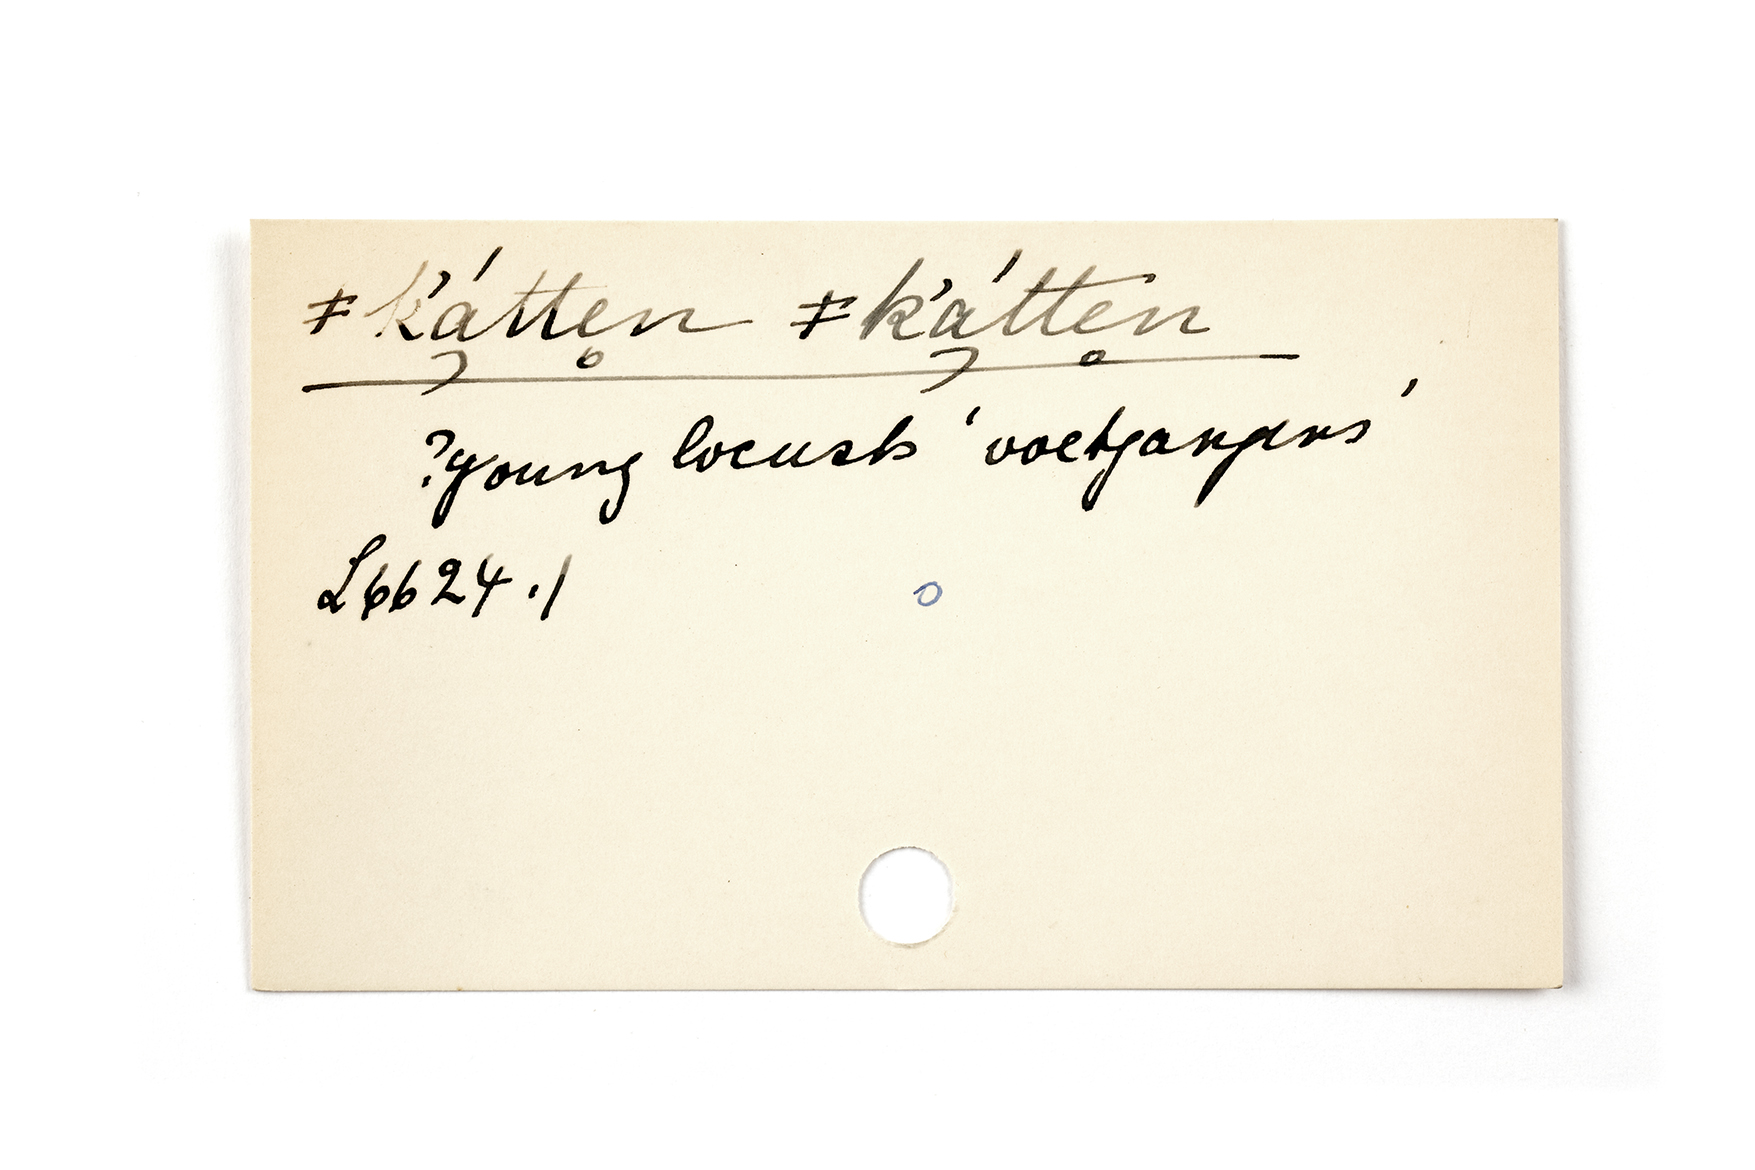 ǂk'á̦tte̥n ǂk'á̦tte̥n
?young locusts 'voetgangers'
L6624.1
o